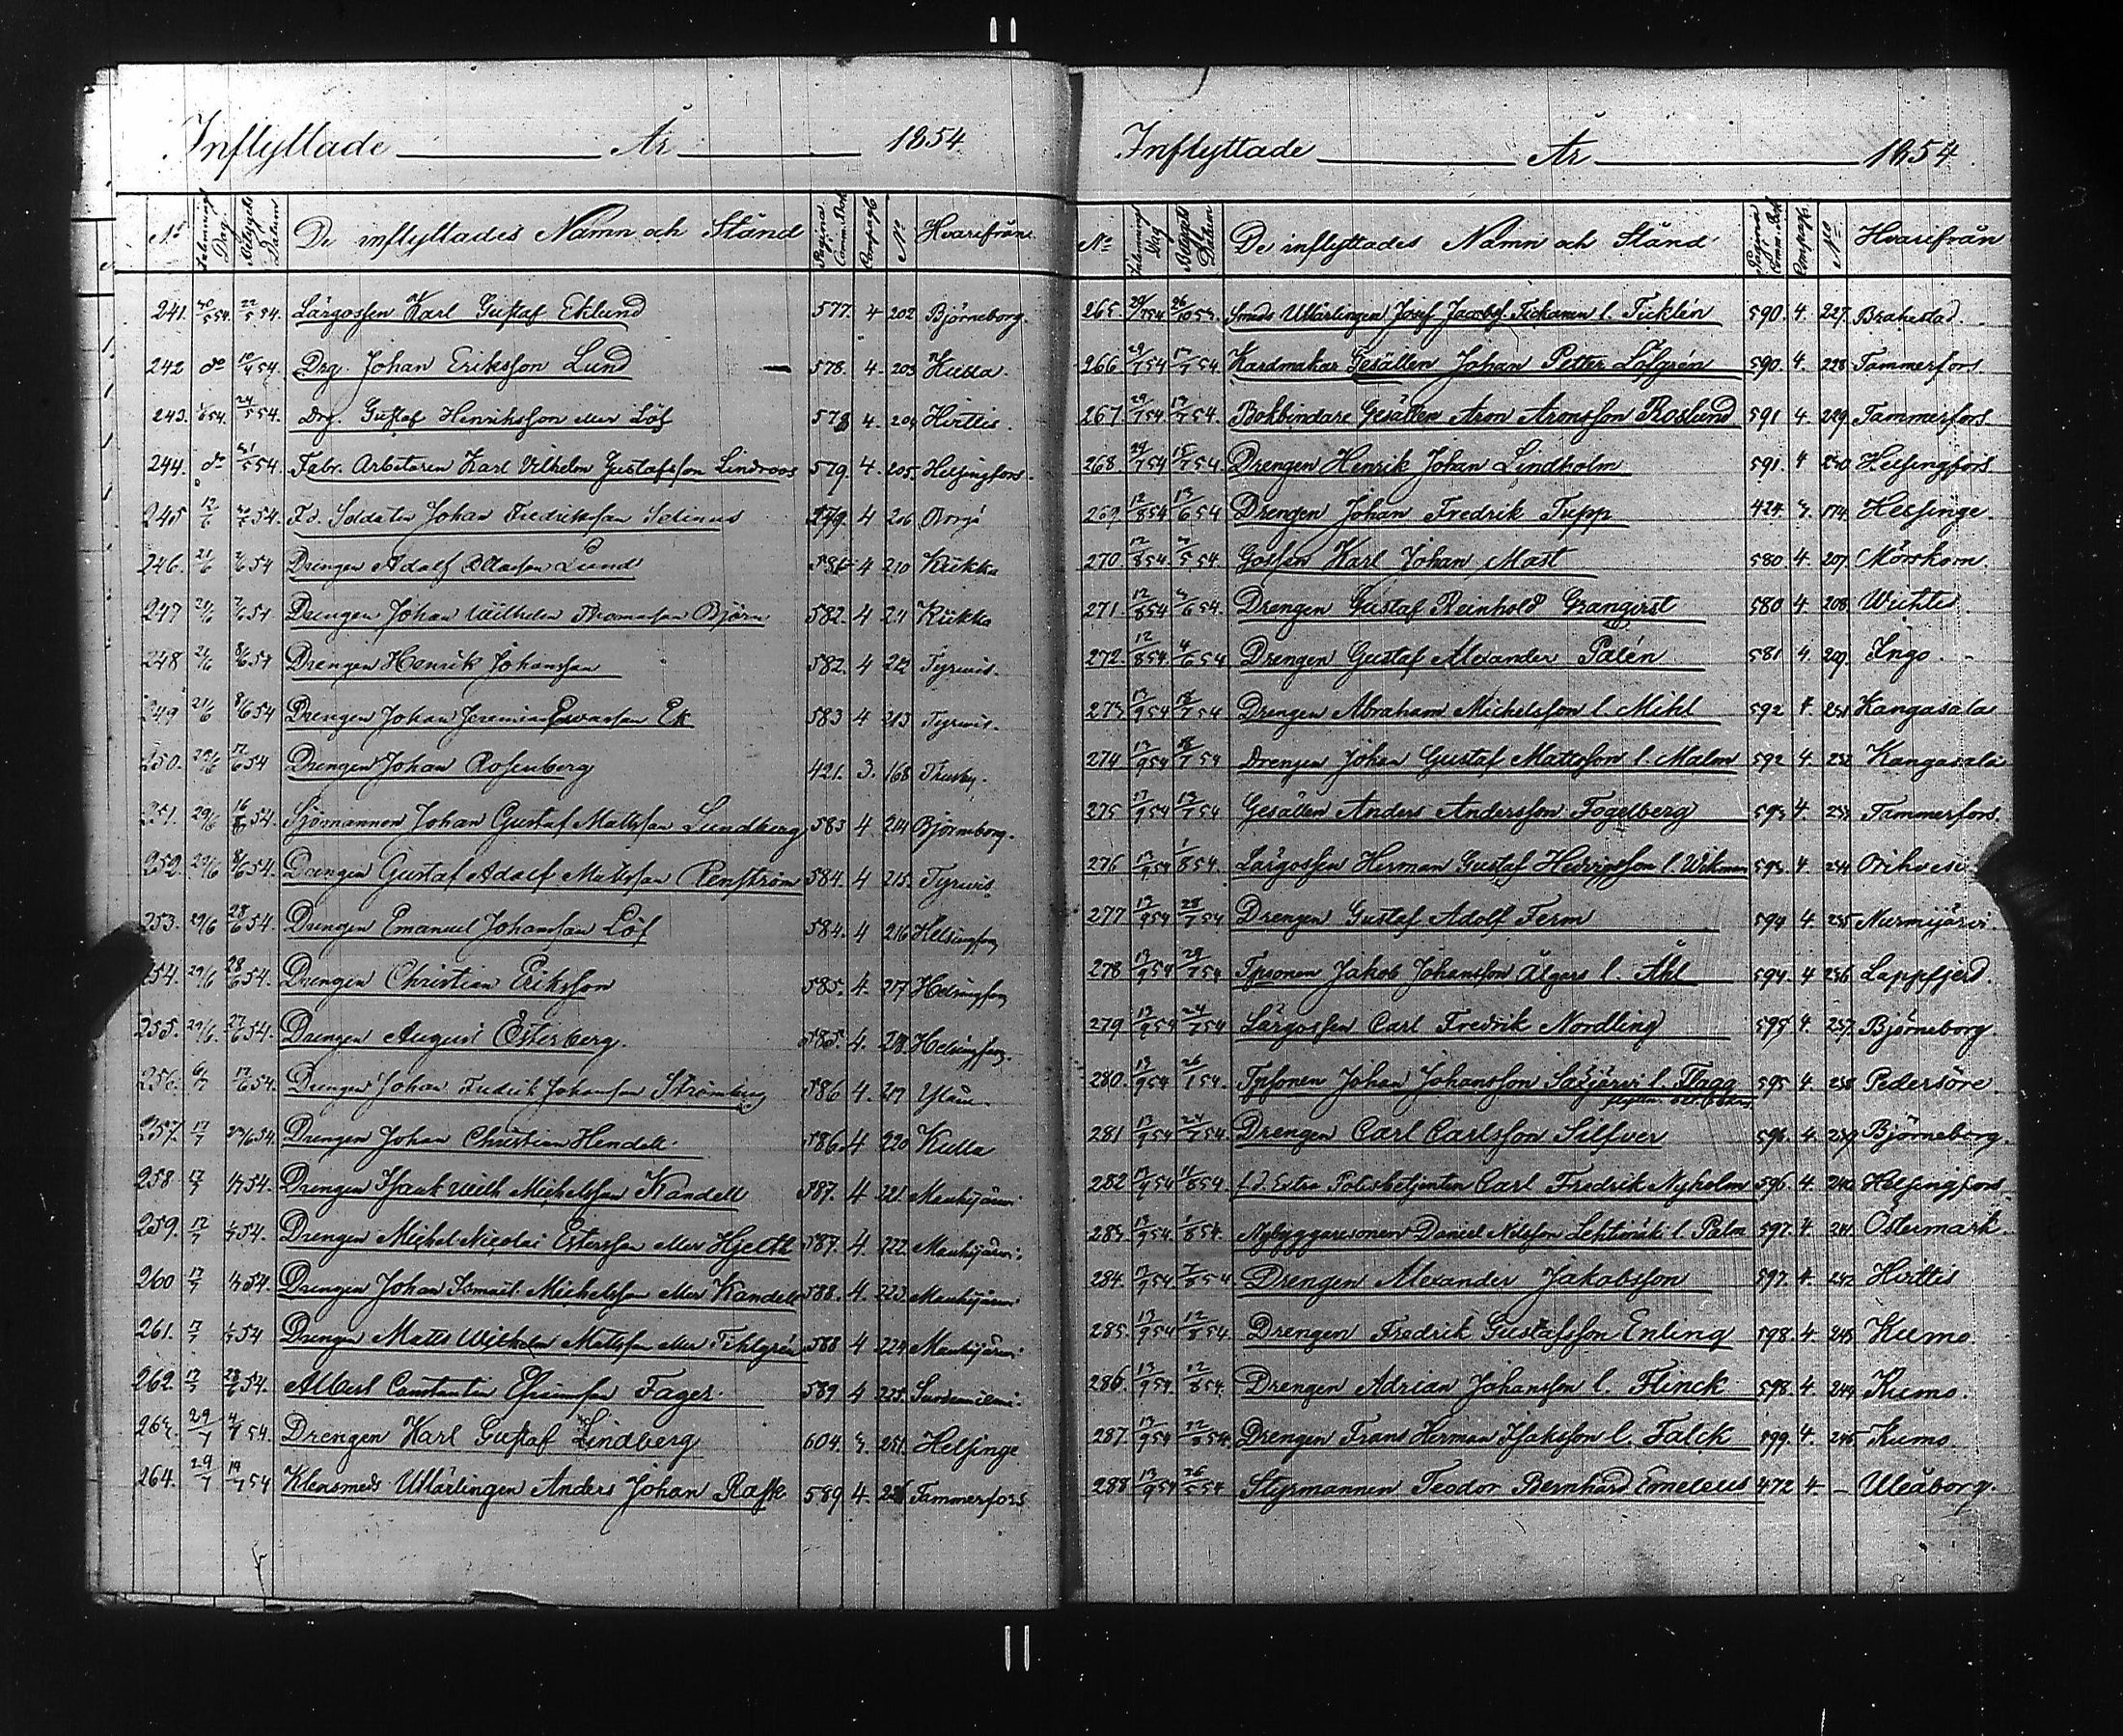 Inflyttade År 1854
No Inlemnings Dag Betygets Datum De inflyttades Namn och Stånd Pagina i Comm. Bok No Hvarifrån
241. 30/5 54. 22/5 54. Lärgossen Karl Gustaf Eklund 577. 4 202 Björneborg.
242 do 10/4 54. Drg. Johan Eriksson Lund 578. 4. 203 Kulla.
243. 54. 24/5 54. Drg. Gustaf Henriksson eller Löf 578 4. 204 Hvittis.
244. do 31/5 54. Fabr. Arbetaren Karl Vilhelm Gustafsson Lindroos 579. 4. 205. Helsingfors.
245 12/6 54. Fd. Soldaten Johan Fredriksson Selinus 279. 4 206 Borgå
246. 21/6 54 Drengen Adolf Lund 4 210 Kiikka
247 21/6 54 Drengen Johan Wilhelm Thomasson Björn 582. 4 211 Kiikka
248 21/6 8/6 54 Drengen Henrik Johansson 582. 4 212 Tyrvis.
249 21/6 8/6 54 Drengen Johan Jeremias Ek 583 4 213 Tyrvis.
250. 29/6 17/6 54 Drengen Johan Rosenberg 421. 3. 168 Thusby.
251. 29/6 16/6 54. Sjömannen Johan Gustaf Mattsson Lundberg 583 4 214 Björneborg.
252. 29/6 8/6 54. Drengen Gustaf Adolf Mattsson Renström 584. 4 215. Tyrvis
253. 29/6 28/6 54. Drengen Emanuel Johansson Löf 584. 4 216 Helsingfors
254. 29/6 28/6 54. Drengen Christian Eriksson 585. 4. 217 Helsingfors
255. 29/6. 27/6 54. Drengen August Österberg. 585. 4. 218. Helsingfors.
256. 6/7 17/6 54. Drengen Johan Fredrik Johansson Strömberg 586 4. 219
257. 17/7 54. Drengen Johan Christian Hendell. 586. 4 220 Kulla
258 17/7 54. Drengen Isaak Wilh Michelsson Kandell 587. 4 221. Mouhijärvi
259. 17/7 54. Drengen Michel Nicolai Estersson eller Hjelth 587. 4. 222. Mouhijärvi.
260 17/7 54. Drengen Johan Ismael Michelsson eller Kandell 588. 4. 223. Mouhijärvi
261. 17/7 54 Drengen Matts Wilhelm Mattsson eller Tihlgrén 588 4 224 Mouhijärvi
262. 17/7 28/6 54. Albert Constantin Fager. 589 4 225. Suoniemi.
263. 29/7 4/7 54. Drengen Karl Gustaf Lindberg 604. 3. 251. Helsinge
264. 29/7 19/7 54 Klensmeds Utlärlingen Anders Johan Rask 589 4. 226 Tammerfors
Inflyttade År 1854
No Inlemnings Dag Betygets Datum De inflyttades Namn och Stånd Pagina i Comm. Bok No Hvarifrån
265 29/7 54 26/10 53. Smeds Utlärlingen Josef Jacobss. Tickanen l. Ticklén 590. 4. 227. Brahestad.
266 29/7 54 17/7 54. Kardmakar Gesällen Johan Petter Löfgrén 590. 4. 228 Tammerfors.
267. 29/7 54. 17/7 54. Bokbindare Gesällen Aron Aronsson Roslund 591 4. 229. Tammerfors.
268. 29/7 54 15/7 54. Drengen Henrik Johan Lindholm 591. 4 230 Helsingfors.
269 12/8 54 13/6 54 Drengen Johan Fredrik Tripp 424 3. 174 Helsinge.
270. 12/8 54 54. Gossen Karl Johan Mast 580 4. 207. Mörskom.
271. 12/8 54 54. Drengen Gustaf Reinhold Granqvist 580 4 208 Wichtis
272. 12/8 54. 4/6 54 Drengen Gustaf Alexander Palén 581 4. 209. Ingo.
273. 13/9 54 18/7 54 Drengen Abraham Michelsson l. Mihl 592 4. 231 Kangasala
274 13/9 54 18/7 54 Drengen Johan Gustaf Mattsson l. Malm 592 4. 232 Kangasala
275 13/9 54 13/7 54 Gesällen Anders Andersson Fogelberg 593 4. 233 Tammerfors.
276 13/9 54 1/8 54. Lärgossen Herman Gustaf Henriksson l. Wikman 593. 4. 234 Orihvesi
277 13/9 54 28/7 54 Drengen Gustaf Adolf Ferm 594 4. 235 Nurmijärvi.
278 13/9 54 29/7 54 Tpsonen Jakob Johansson Älgars l. Åhl 594. 4 236. Lappfjerd.
279 13/9 54 24/7 54 Lärgossen Carl Fredrik Nordling 595 4. 237. Björneborg
280. 13/9 54 26/1 54. Tpsonen Johan Johansson Säxjärvi l. Flagg 595 4. 238 Pedersöre
281 13/9 54 24/7 54. Drengen Carl Carlsson Silfver 596. 4. 239 Björneborg.
282 13/9 54 11/8 54 f.d. Extra Polisbetjenten Carl Fredrik Nyholm 596. 4. 240 Helsingfors.
283 13/9 54. 1/8 54. Nybyggaresonen Daniel Nilsson Lehtimäki l. Palm 597. 4. 241. Östermark.
284. 13/9 54 7/8 54. Drengen Alexander Jakobsson 597. 4. 242 Hvittis
285. 13/9 54 12/8 54. Drengen Fredrik Gustafsson Enling 598. 4. 243. Kumo
286. 13/9 54. 12/8 54. Drengen Adrian Johansson l. Flinck 598. 4. 244 Kumo.
287. 13/9 54 22/8 54. Drengen Frans Herman Isaksson l. Falck 599. 4. 245. Kumo.
288 13/9 54 26/5 54 Styrmannen Teodor Bernhard Emeleus 472 4. – Uleåborg.